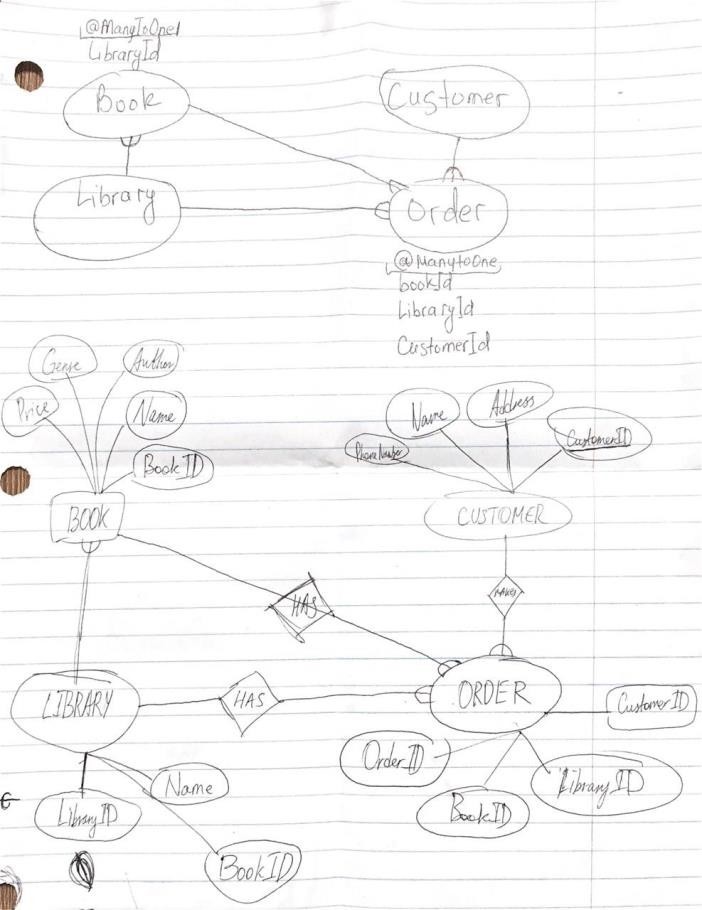 @ManyToOne
LibraryId
Book
Customer
Library
Order
@ManytoOne
bookId
LibraryId
CustomerId
Genre
Author
Price
Name
BookID
BOOK
Name
Address
PhoneNumber
CustomerID
CUSTOMER
HAS
MAKES
LIBRARY
HAS
ORDER
CustomerID
OrderID
LibraryID
BookID
Name
LibraryID
BookID